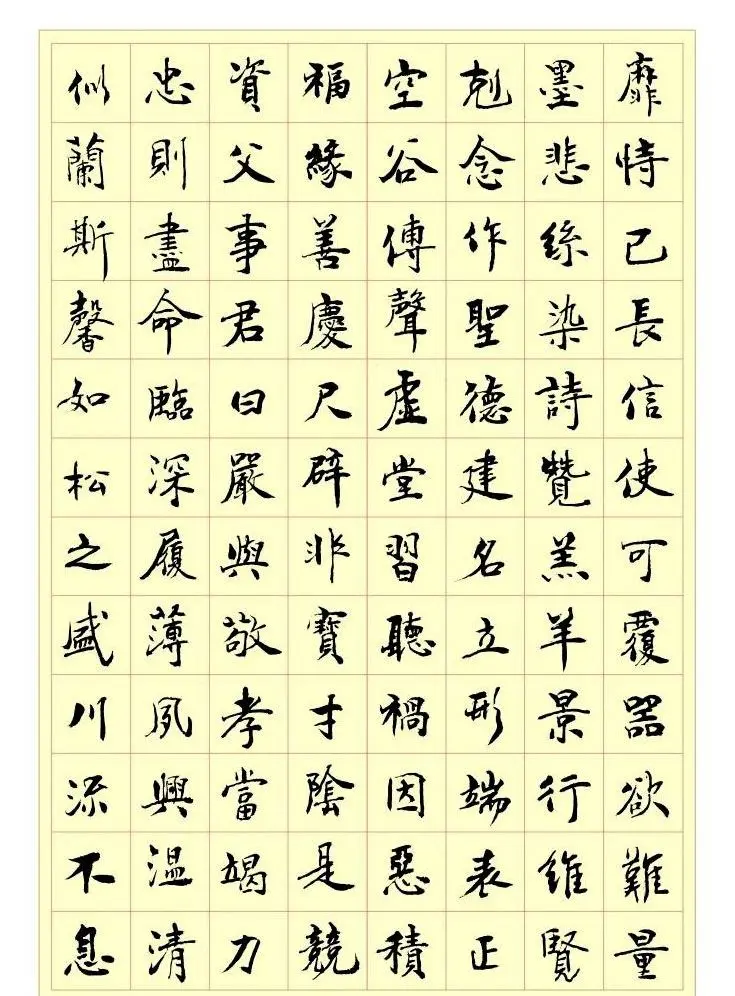 靡恃己長信使可覆器欲難量
墨悲絲染詩讚羔羊景行維賢
剋念作聖德建名立形端表正
空谷傳聲虛堂習聽禍因惡積
福緣善慶尺璧非寶寸陰是競
資父事君曰嚴與敬孝當竭力
忠則盡命臨深履薄夙興溫凊
似蘭斯馨如松之盛川流不息